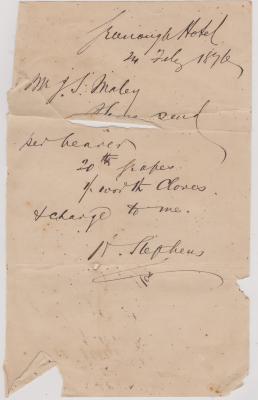 Hotel
24 July 1876
Mr J. S. Maley
Please send
per bearer
20 lb grapes
1/- worth Cloves.
& charge to me.
Stephens